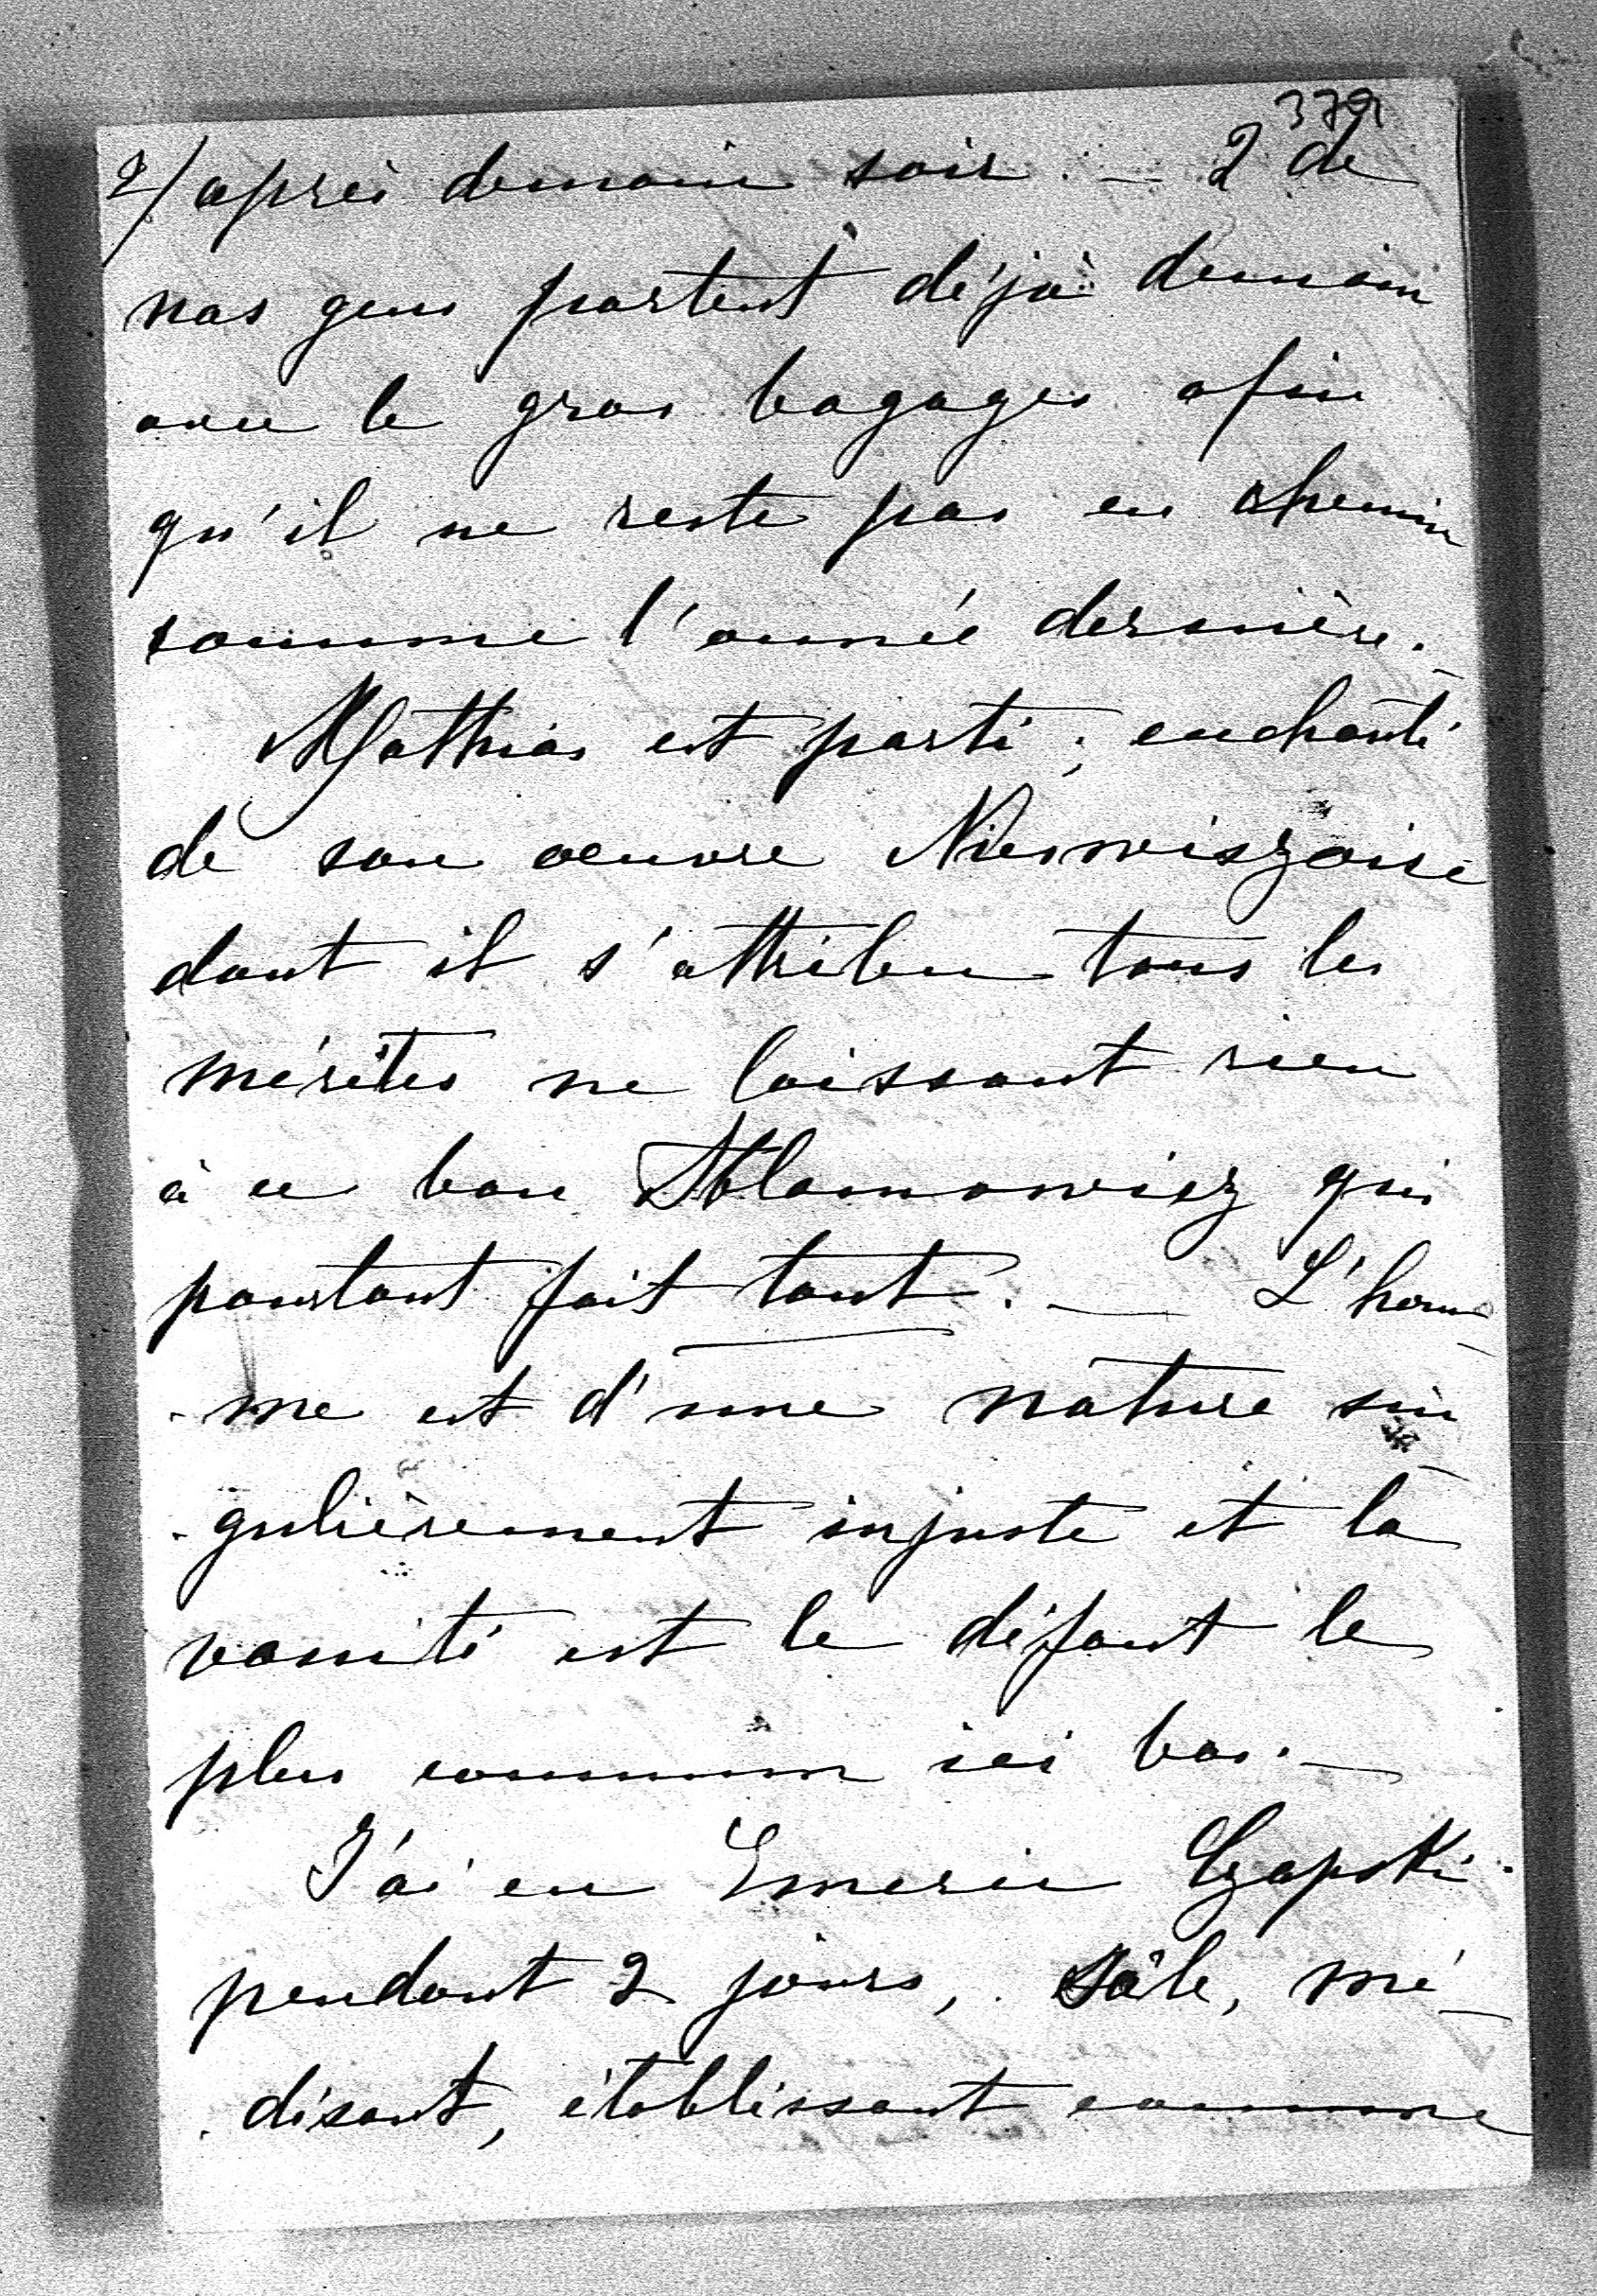 379
2/ après demain soir. — 2 de
nos gens partent déjà demain
avec le gros bagages afin
qu'il ne reste pas en chemin
comme l'année dernière. —
Mathias est parti; enchanté
de son oeuvre Nieswiszoise
dont il s'attribue tous les
mérites ne laissant rien
à ce bon Ablamowicz qui
pourtant fait tout. — L'hom-
-me est d'une nature sin
-gulièrement injuste et la
vanité est le défaut le
plus commun ici bas. —
J'ai eu Emeric Czapski
pendant 2 jours, mé-
-disant, établissant comme